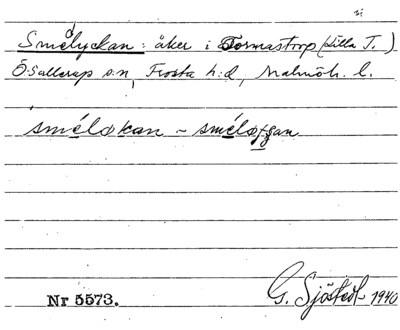 Smélyckan: åker i Tormastorp (Lilla T.)
Ö. Sallerup s:n, Frosta h:d, Malmöh. l.
sméløkan ~ sméløggan
Nr 5573. G. Sjöstedt 1940